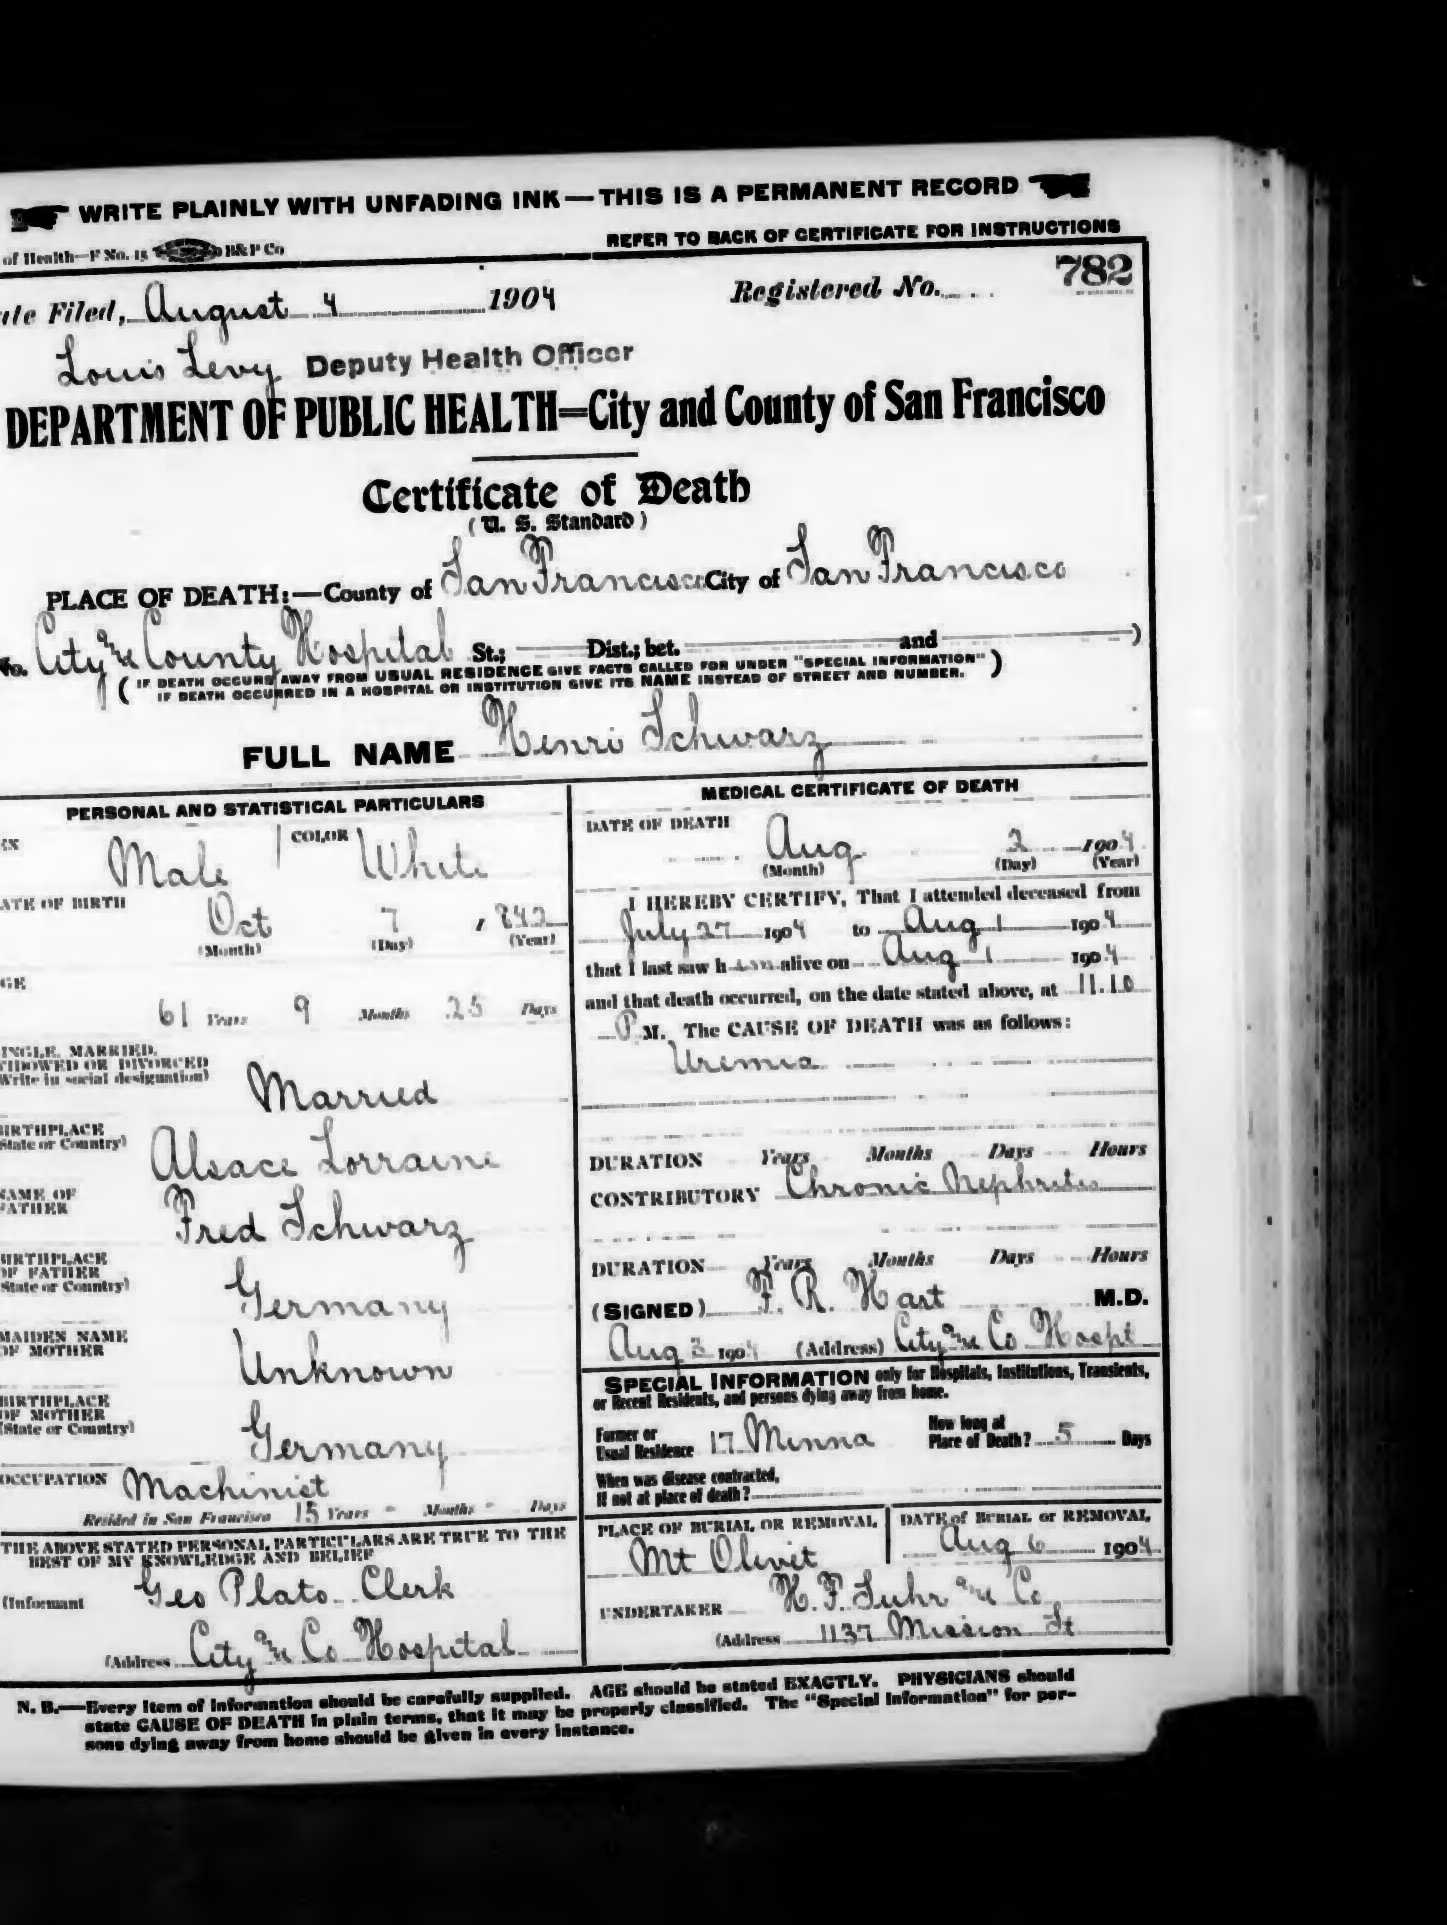 WRITE PLAINLY WITH UNFADING INK—THIS IS A PERMANENT RECORD
of Health—F No. 15 B&P Co
REFER TO BACK OF CERTIFICATE FOR INSTRUCTIONS
ate Filed, August 4 1904 Registered No. 782
Louis Levy Deputy Health Officer
DEPARTMENT OF PUBLIC HEALTH=City and County of San Francisco
Certificate of Death
(U. S. Standard)
PLACE OF DEATH:—County of San Francisco City of San Francisco
No. City and County Hospital St.; Dist.; bet. and )
( IF DEATH OCCURS AWAY FROM USUAL RESIDENCE GIVE FACTS CALLED FOR UNDER "SPECIAL INFORMATION" )
IF DEATH OCCURRED IN A HOSPITAL OR INSTITUTION GIVE ITS NAME INSTEAD OF STREET AND NUMBER.
FULL NAME Henri Schwarz
PERSONAL AND STATISTICAL PARTICULARS
EX Male COLOR White
ATE OF BIRTH Oct 7, 842
(Month) (Day) (Year)
GE
61 Years 9 Months 25 Days
INGLE, MARRIED,
IDOWED OR DIVORCED
Write in social designation)
Married
BIRTHPLACE
State or Country)
Alsace Lorraine
NAME OF
FATHER
Fred Schwarz
BIRTHPLACE
OF FATHER
State or Country)
Germany
MAIDEN NAME
OF MOTHER
Unknown
BIRTHPLACE
OF MOTHER
(State or Country)
Germany
OCCUPATION Machinist
Resided in San Francisco 15 Years - Months - Days
THE ABOVE STATED PERSONAL PARTICULARS ARE TRUE TO THE
BEST OF MY KNOWLEDGE AND BELIEF
(Informant Geo Plato Clerk
(Address City and Co Hospital
MEDICAL CERTIFICATE OF DEATH
DATE OF DEATH
Aug 2 1904
(Month) (Day) (Year)
I HEREBY CERTIFY, That I attended deceased from
July 27 1904 to Aug 1 1904
that I last saw him alive on Aug 1 1904
and that death occurred, on the date stated above, at 11.10
P M. The CAUSE OF DEATH was as follows:
Uremia
DURATION Years Months Days Hours
CONTRIBUTORY Chronic Nephritis
DURATION Years Months Days Hours
(SIGNED) F. R. Hart M.D.
Aug 3 1904 (Address) City and Co Hospt
SPECIAL INFORMATION only for Hospitals, Institutions, Transients,
or Recent Residents, and persons dying away from home.
Former or
Usual Residence 17 Minna
How long at
Place of Death? 5 Days
When was disease contracted,
If not at place of death?
PLACE OF BURIAL OR REMOVAL
Mt Olivet
DATE of BURIAL or REMOVAL
Aug 6 1904
UNDERTAKER H. F. Suhr and Co
(Address 1137 Mission St
N. B.—Every item of information should be carefully supplied. AGE should be stated EXACTLY. PHYSICIANS should
state CAUSE OF DEATH in plain terms, that it may be properly classified. The "Special Information" for per-
sons dying away from home should be given in every instance.